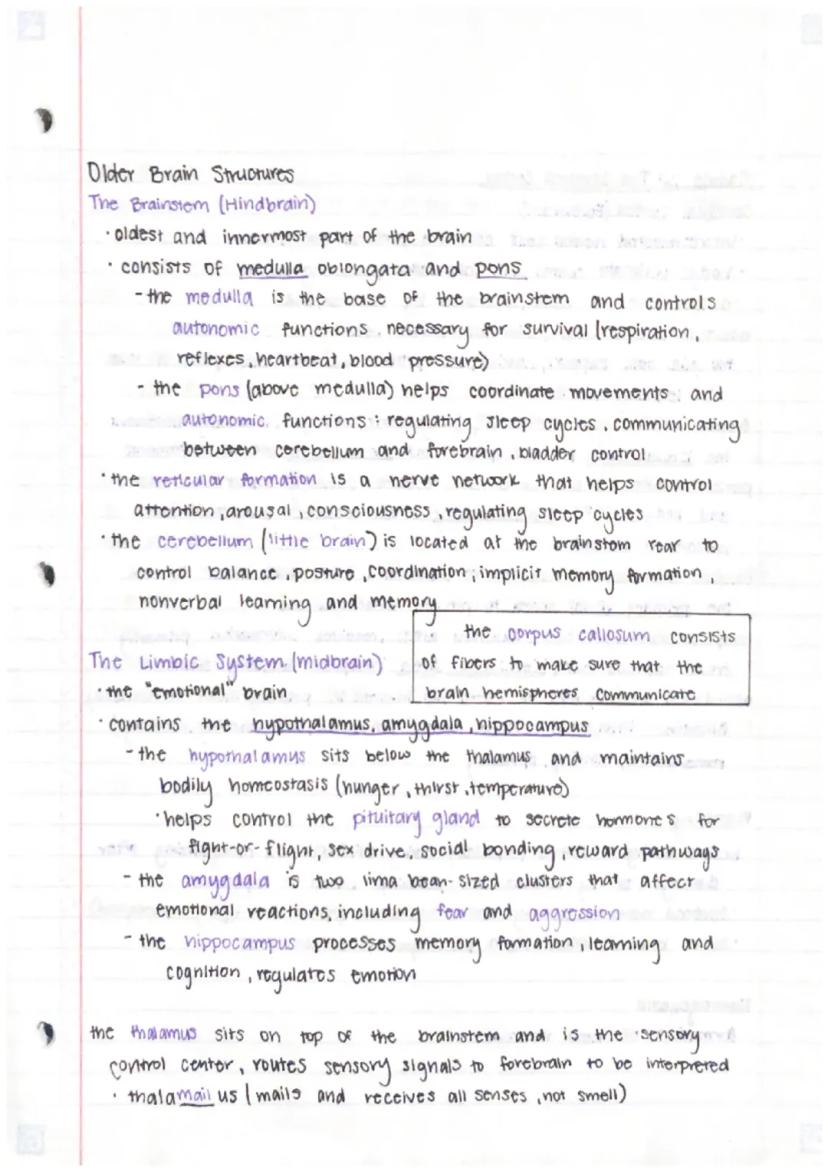 Older Brain Structures
The Brainstem (Hindbrain)
· oldest and innermost part of the brain
· consists of medulla oblongata and pons
- the medulla is the base of the brainstem and controls
autonomic functions necessary for survival (respiration,
reflexes, heartbeat, blood pressure)
- the pons (above medulla) helps coordinate movements and
autonomic functions: regulating sleep cycles, communicating
between cerebellum and forebrain, bladder control
· the reticular formation is a nerve network that helps control
attention, arousal, consciousness, regulating sleep cycles
· the cerebellum (little brain) is located at the brainstem rear to
control balance, posture, coordination; implicit memory formation,
nonverbal learning and memory
the corpus callosum consists
of fibers to make sure that the
brain hemispheres communicate
The Limbic System (midbrain)
· the "emotional" brain
· contains the hypothalamus, amygdala, hippocampus
- the hypothalamus sits below the thalamus and maintains
bodily homeostasis (hunger, thirst, temperature)
· helps control the pituitary gland to secrete hormones for
fight-or-flight, sex drive, social bonding, reward pathways
- the amygdala is two lima bean-sized clusters that affect
emotional reactions, including fear and aggression
- the hippocampus processes memory formation, learning and
cognition, regulates emotion
the thalamus sits on top of the brainstem and is the sensory
control center, routes sensory signals to forebrain to be interpreted
· thalamailus (mails and receives all senses, not smell)